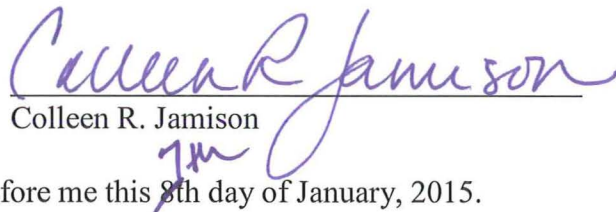 Colleen R Jamison
Colleen R. Jamison
7th
fore me this 8th day of January, 2015.